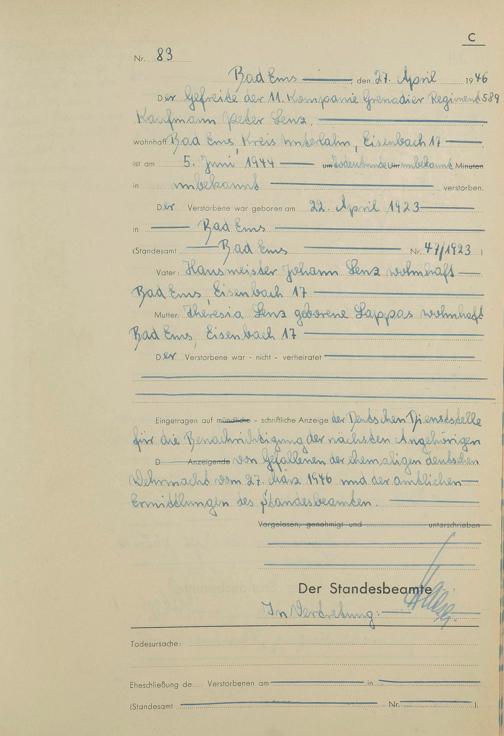 C
Nr. 83
Bad Ems, den 27. April 1946
Der Gefreite der 11. Kompanie Grenadier Regiment 589
Kaufmann Peter Lenz.
wohnhaft Bad Ems, Kreis Unterlahn, Eisenbach 17
ist am 5. Juni 1944 um Todesstunde Uhr unbekannt Minuten
in unbekannt verstorben.
Der Verstorbene war geboren am 22. April 1923
in Bad Ems
(Standesamt Bad Ems Nr. 47/1923)
Vater: Hausmeister Johann Lenz wohnhaft
Bad Ems, Eisenbach 17
Mutter: Theresia Lenz geborene Lappas wohnhaft
Bad Ems, Eisenbach 17
Der Verstorbene war - nicht - verheiratet
Eingetragen auf mündliche - schriftliche Anzeige der Deutschen Dienststelle
für die Benachrichtigung der nächsten Angehörigen
D Anzeigende von Gefallenen der ehemaligen deutschen
Wehrmacht vom 27. März 1946 und der amtlichen
Ermittlungen des Standesbeamten.
Vorgelesen, genehmigt und unterschrieben
Der Standesbeamte
In Vertretung:
Todesursache:
Eheschließung de Verstorbenen am in
(Standesamt Nr. ).